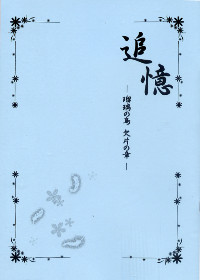 追憶
―瑠璃の鳥 欠片の章―